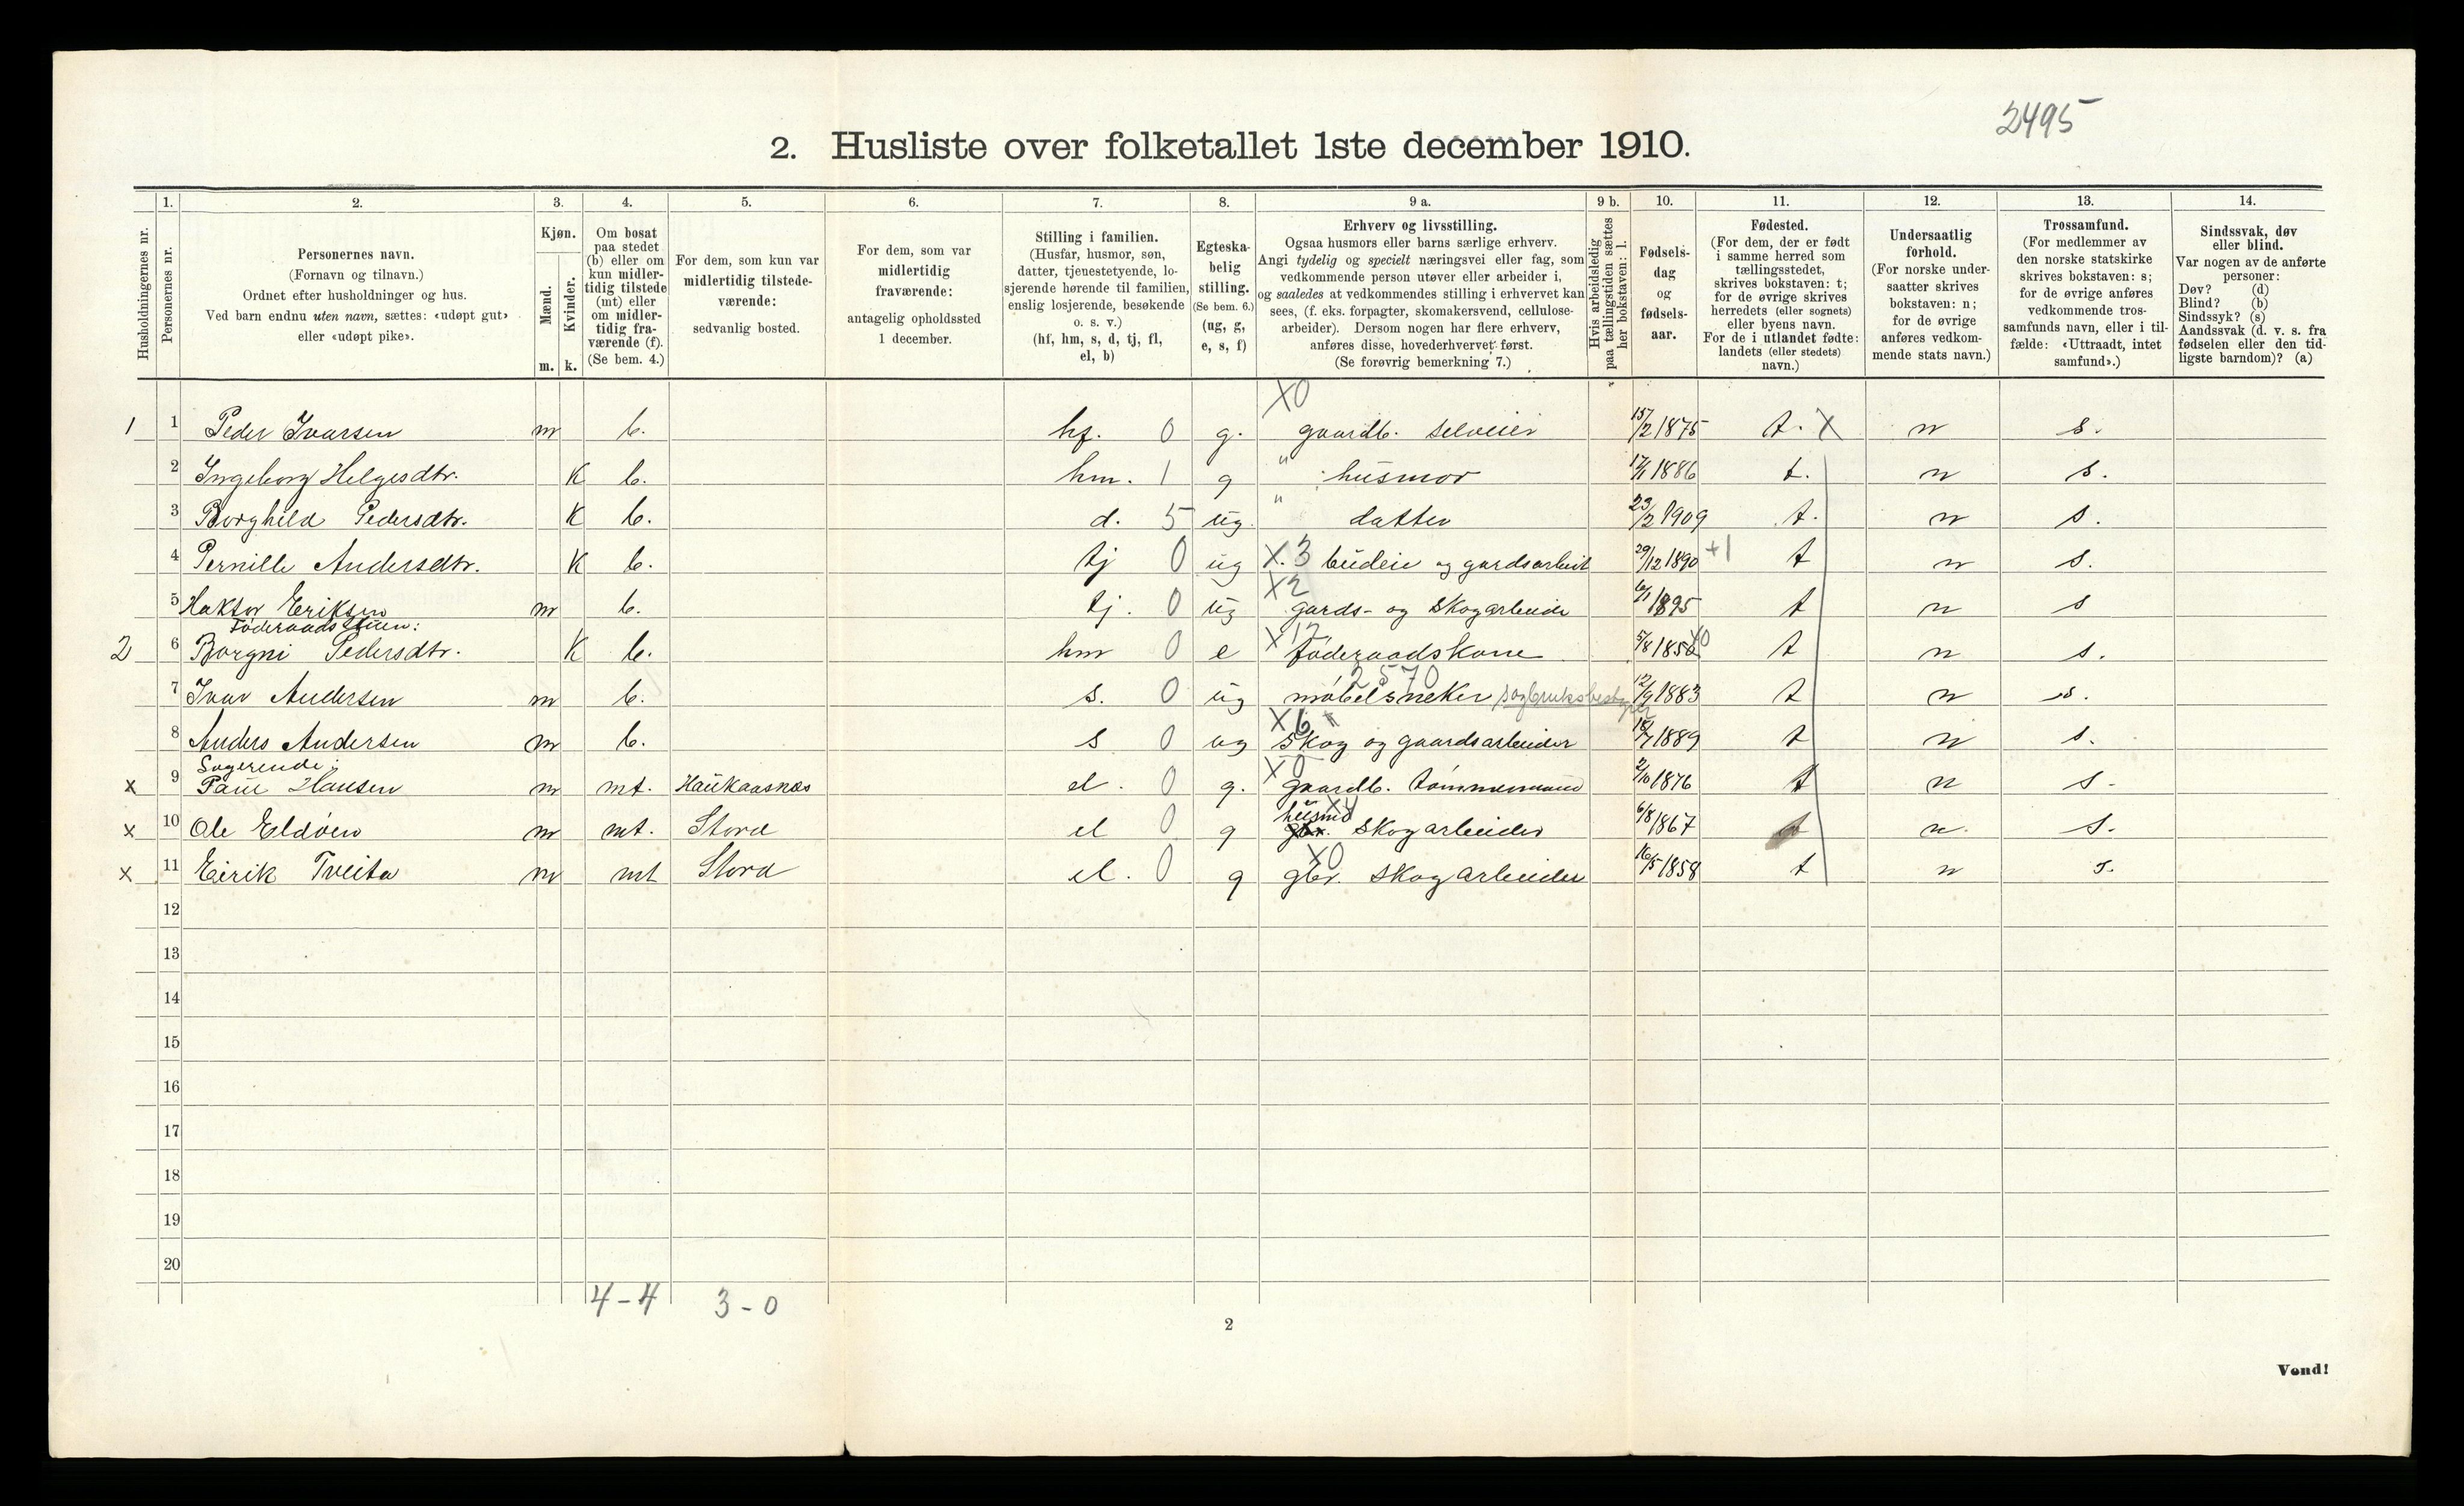 2495
2. Husliste over folketallet 1ste december 1910.
Husholdningernes nr.
1.
Personernes nr.
2.
Personernes navn.
(Fornavn og tilnavn.)
Ordnet efter husholdninger og hus.
Ved barn endnu uten navn, sættes: «udøpt gut»
eller «udøpt pike».
3.
Kjøn.
Mænd.
Kvinder.
m. k.
4.
Om bosat
paa stedet
(b) eller om
kun midler-
tidig tilstede
(mt) eller
om midler-
tidig fra-
værende (f).
(Se bem. 4.)
5.
For dem, som kun var
midlertidig tilstede-
værende:
sedvanlig bosted.
6.
For dem, som var
midlertidig
fraværende:
antagelig opholdssted
1 december.
7.
Stilling i familien.
(Husfar, husmor, søn,
datter, tjenestetyende, lo-
sjerende hørende til familien,
enslig losjerende, besøkende
o. s. v.)
(hf, hm, s, d, tj, fl,
el, b)
8.
Egteska-
belig
stilling.
(Se bem. 6.)
(ug, g,
e, s, f)
9 a.
Erhverv og livsstilling.
Ogsaa husmors eller barns særlige erhverv.
Angi tydelig og specielt næringsvei eller fag, som
vedkommende person utøver eller arbeider i,
og saaledes at vedkommendes stilling i erhvervet kan
sees, (f. eks. forpagter, skomakersvend, cellulose-
arbeider). Dersom nogen har flere erhverv,
anføres disse, hovederhvervet først.
(Se forøvrig bemerkning 7.)
9 b.
Hvis arbeidsledig
paa tællingstiden sættes
her bokstaven: l.
10.
Fødsels-
dag
og
fødsels-
aar.
11.
Fødested.
(For dem, der er født
i samme herred som
tællingsstedet,
skrives bokstaven: t;
for de øvrige skrives
herredets (eller sognets)
eller byens navn.
For de i utlandet fødte:
landets (eller stedets)
navn.)
12.
Undersaatlig
forhold.
(For norske under-
saatter skrives
bokstaven: n;
for de øvrige
anføres vedkom-
mende stats navn.)
13.
Trossamfund.
(For medlemmer av
den norske statskirke
skrives bokstaven: s;
for de øvrige anføres
vedkommende tros-
samfunds navn, eller i til-
fælde: «Uttraadt, intet
samfund».)
14.
Sindssvak, døv
eller blind.
Var nogen av de anførte
personer:
Døv? (d)
Blind? (b)
Sindssyk? (s)
Aandssvak (d. v. s. fra
fødselen eller den tid-
ligste barndom)? (a)
X0
1 1 Peder Ivarsen m b. hf. 0 g. gaardb. selveier 15/2 1875 t. X n s.
2 Ingeborg Helgesdtr. K b. hm. 1 g " husmor 17/1 1886 t. n s.
3 Borghild Pedersdtr. K b. d. 5 ug. " datter 23/2 1909 t. n s.
4 Pernille Andersdtr. K b. tj 0 ug X.3 budeie og gardsarbeit 29/12 1890 +1 t n s.
X2
5 Haktor Eriksen m b. tj. 0 ug gards- og skogarbeide 6/1 1895 t n s
Føderaadstuen:
2 6 Borgni Pedersdtr. K b. hm 0 e X12 føderaadskone 5/8 1852 X0 t n s.
2570
7 Ivar Andersen m b. s. 0 ug møbelsneker sagbruksbestyrer 12/9 1883 t n s.
X6
8 Anders Andersen m b. s 0 ug skog og gaardsarbeider 18/7 1889 t n s.
Logerende:
X0
x 9 Paul Hansen m mt. Haukaasnes el. 0 g. gaardb. tømmermand 2/10 1876 t n s.
husmd X4
x 10 Ole Eldøen m mt. Stord el 0 g gbr. skogarbeider 6/8 1867 n. s.
X0
x 11 Eirik Tveita m mt Stord el. 0 g gbr. skogarbeider 16/5 1858 t n s.
12
13
14
15
16
17
18
19
20
4-4 3-0
2
Vend!